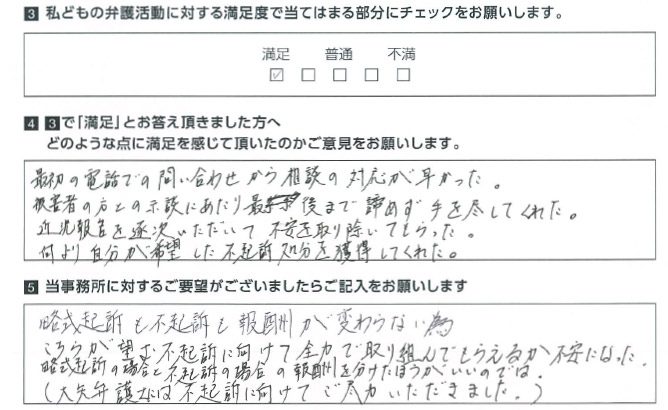 3 私どもの弁護活動に対する満足度で当てはまる部分にチェックをお願いします。
満足 普通 不満
☑ □ □ □ □
4 3で「満足」とお答え頂きました方へ
どのような点に満足を感じて頂いたのかご意見をお願いします。
最初の電話での問い合わせから相談の対応が早かった。
被害者の方との示談にあたり最後まで諦めず手を尽してくれた。
近況報告を逐次いただいて不安を取り除いてもらった。
何より自分が希望した不起訴処分を獲得してくれた。
5 当事務所に対するご要望がございましたらご記入をお願いします
略式起訴も不起訴も報酬が変わらない為
こちらが望む不起訴に向けて全力で取り組んでもらえるか不安になった.
略式起訴の場合と不起訴の場合の報酬を分けたほうがいいのでは.
(大矢弁護士は不起訴に向けてご尽力いただきました。)